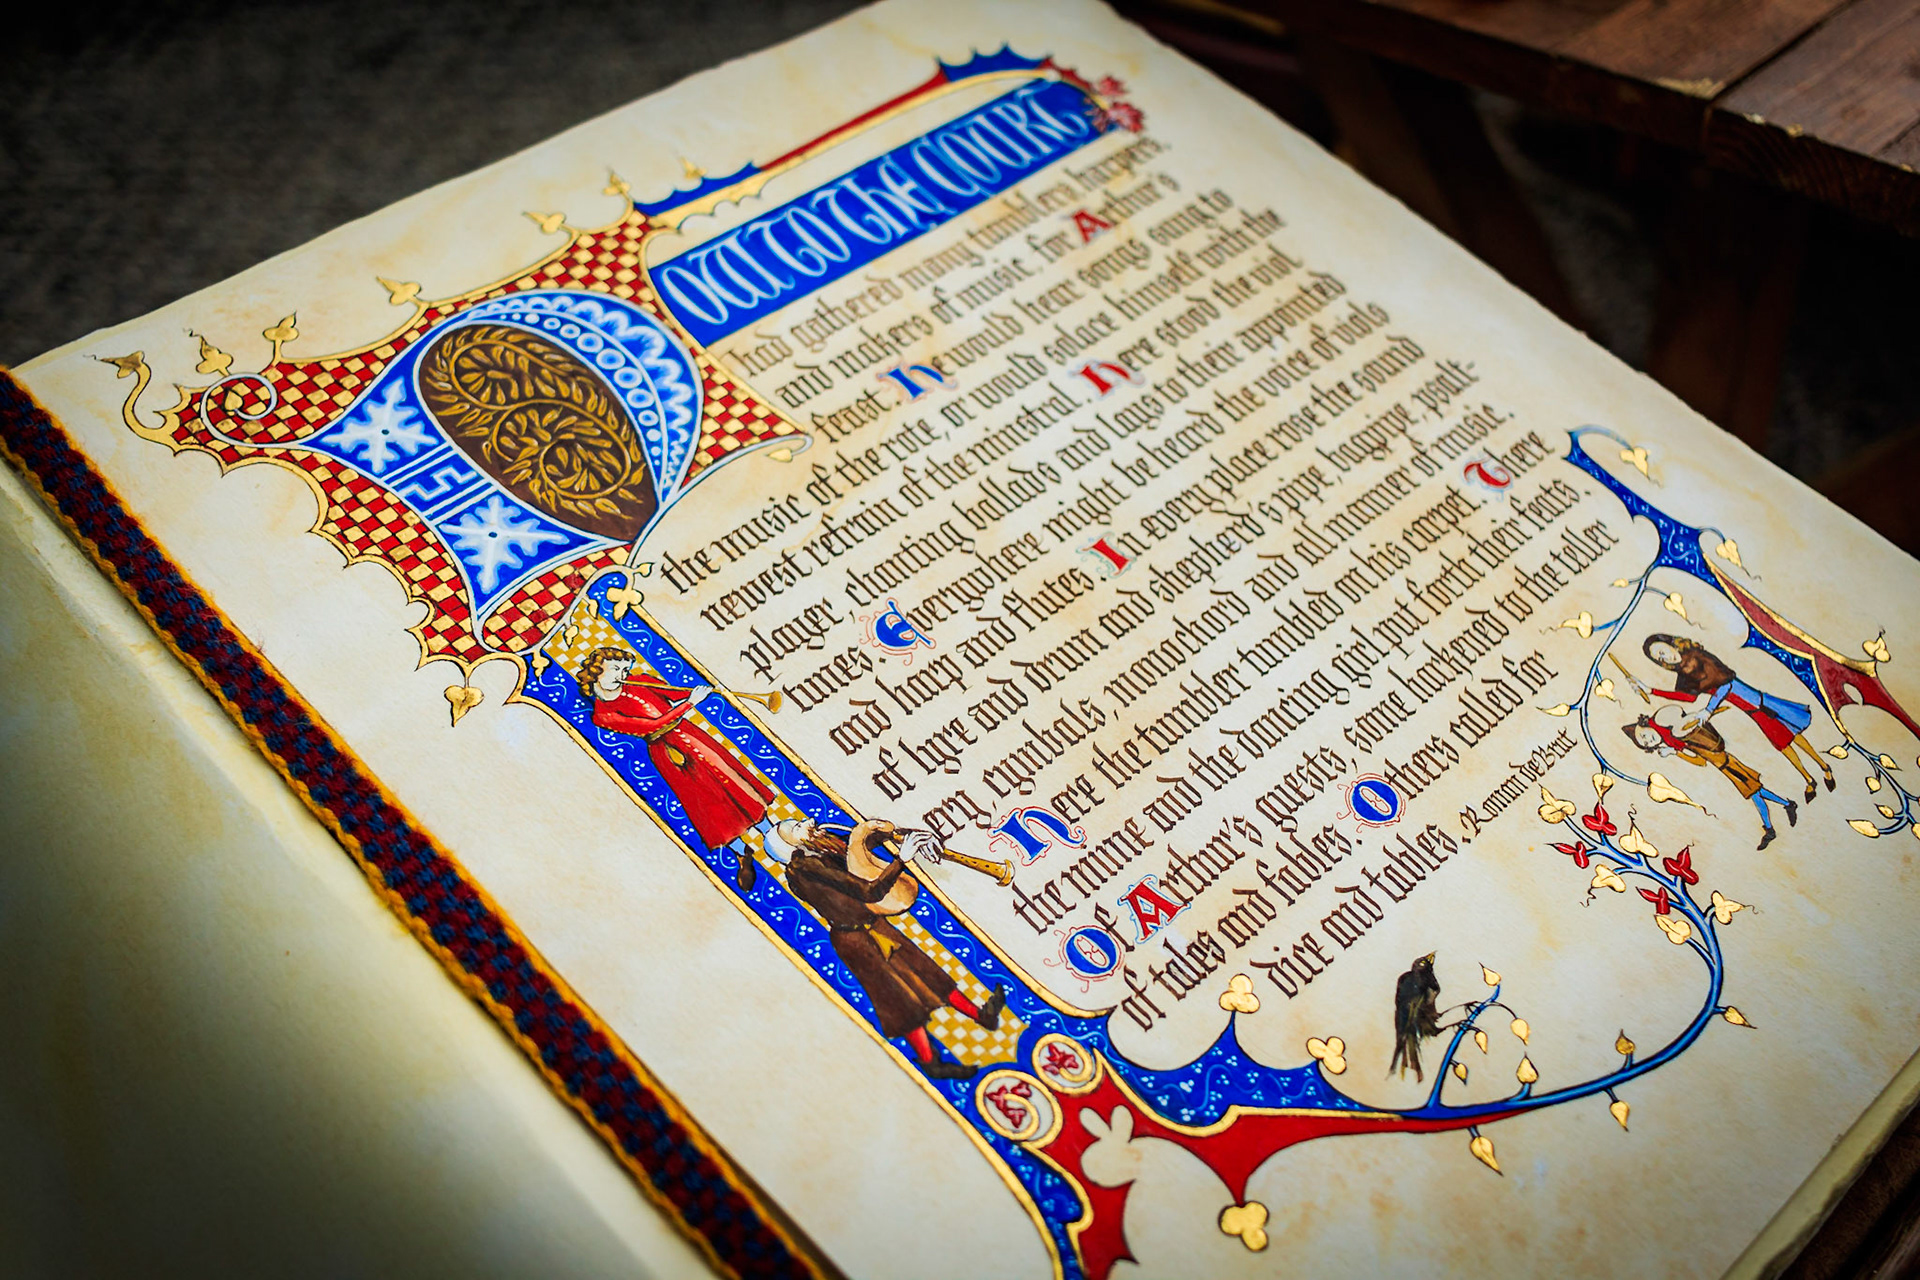 NOW TO THE COURT
had gathered many tumblers, harpers,
and makers of music, for Arthur's
feast. He would hear songs sung to
the music of the rote, or would solace himself with the
newest refrain of the minstral. Here stood the viol
player, chanting ballads and lays to their appointed
tunes. Everywhere might be heard the voice of viols
and harp and flutes. In every place rose the sound
of lyre and drum and shepherd's pipe, bagpipe, psalt-
ery, cymbals, monochord and all manner of music.
Here the tumbler tumbled on his carpet. There
the mime and the dancing girl put forth their feats.
Of Arthur's guests, some harkened to the teller
of tales and fables. Others called for
dice and tables. Roman de Brut